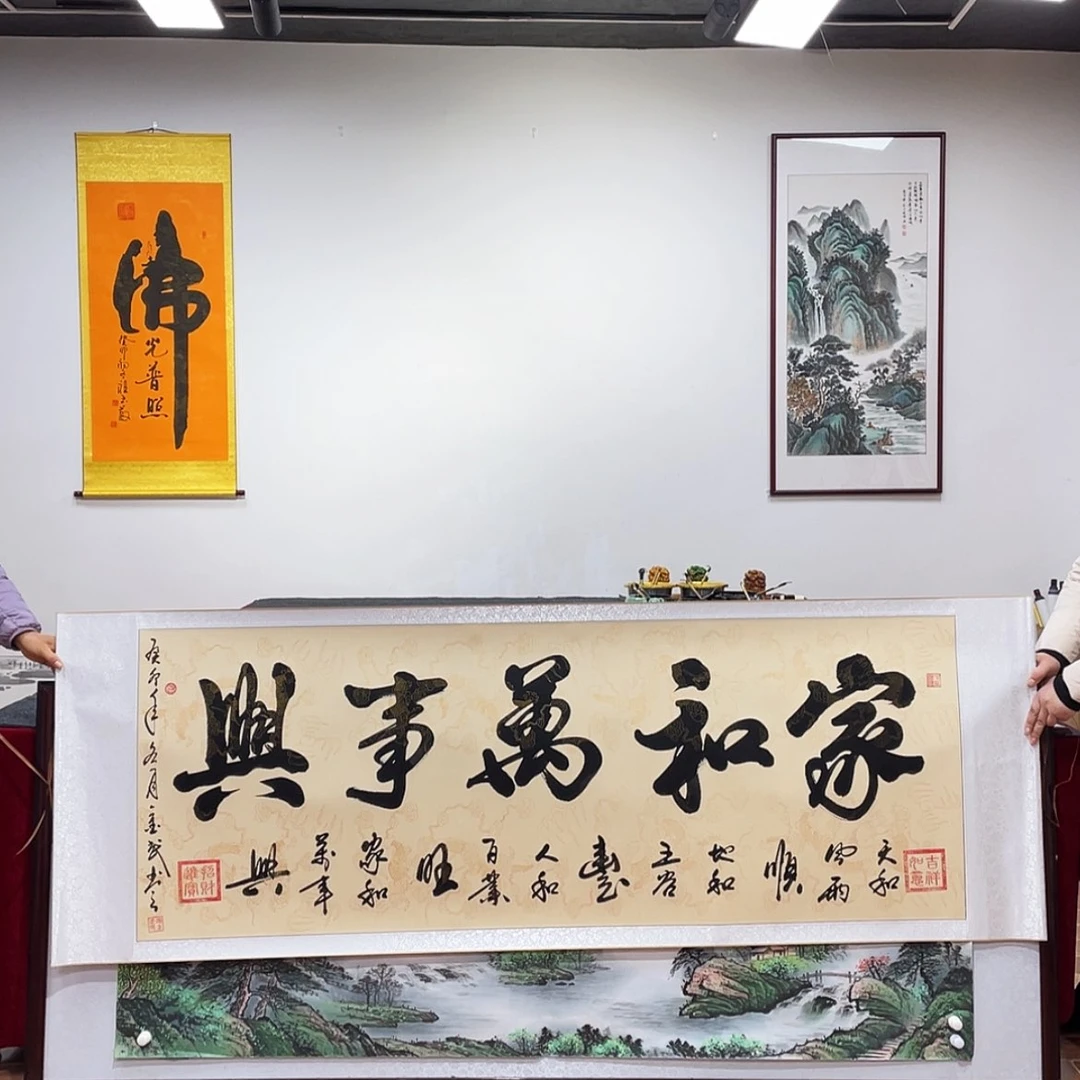 佛
光普照
癸卯
家和萬事興
天和
風雨
順
地和
五谷
豐
人和
百業
旺
家和
萬事
興
癸卯年冬月
吉祥如意
招財進寶